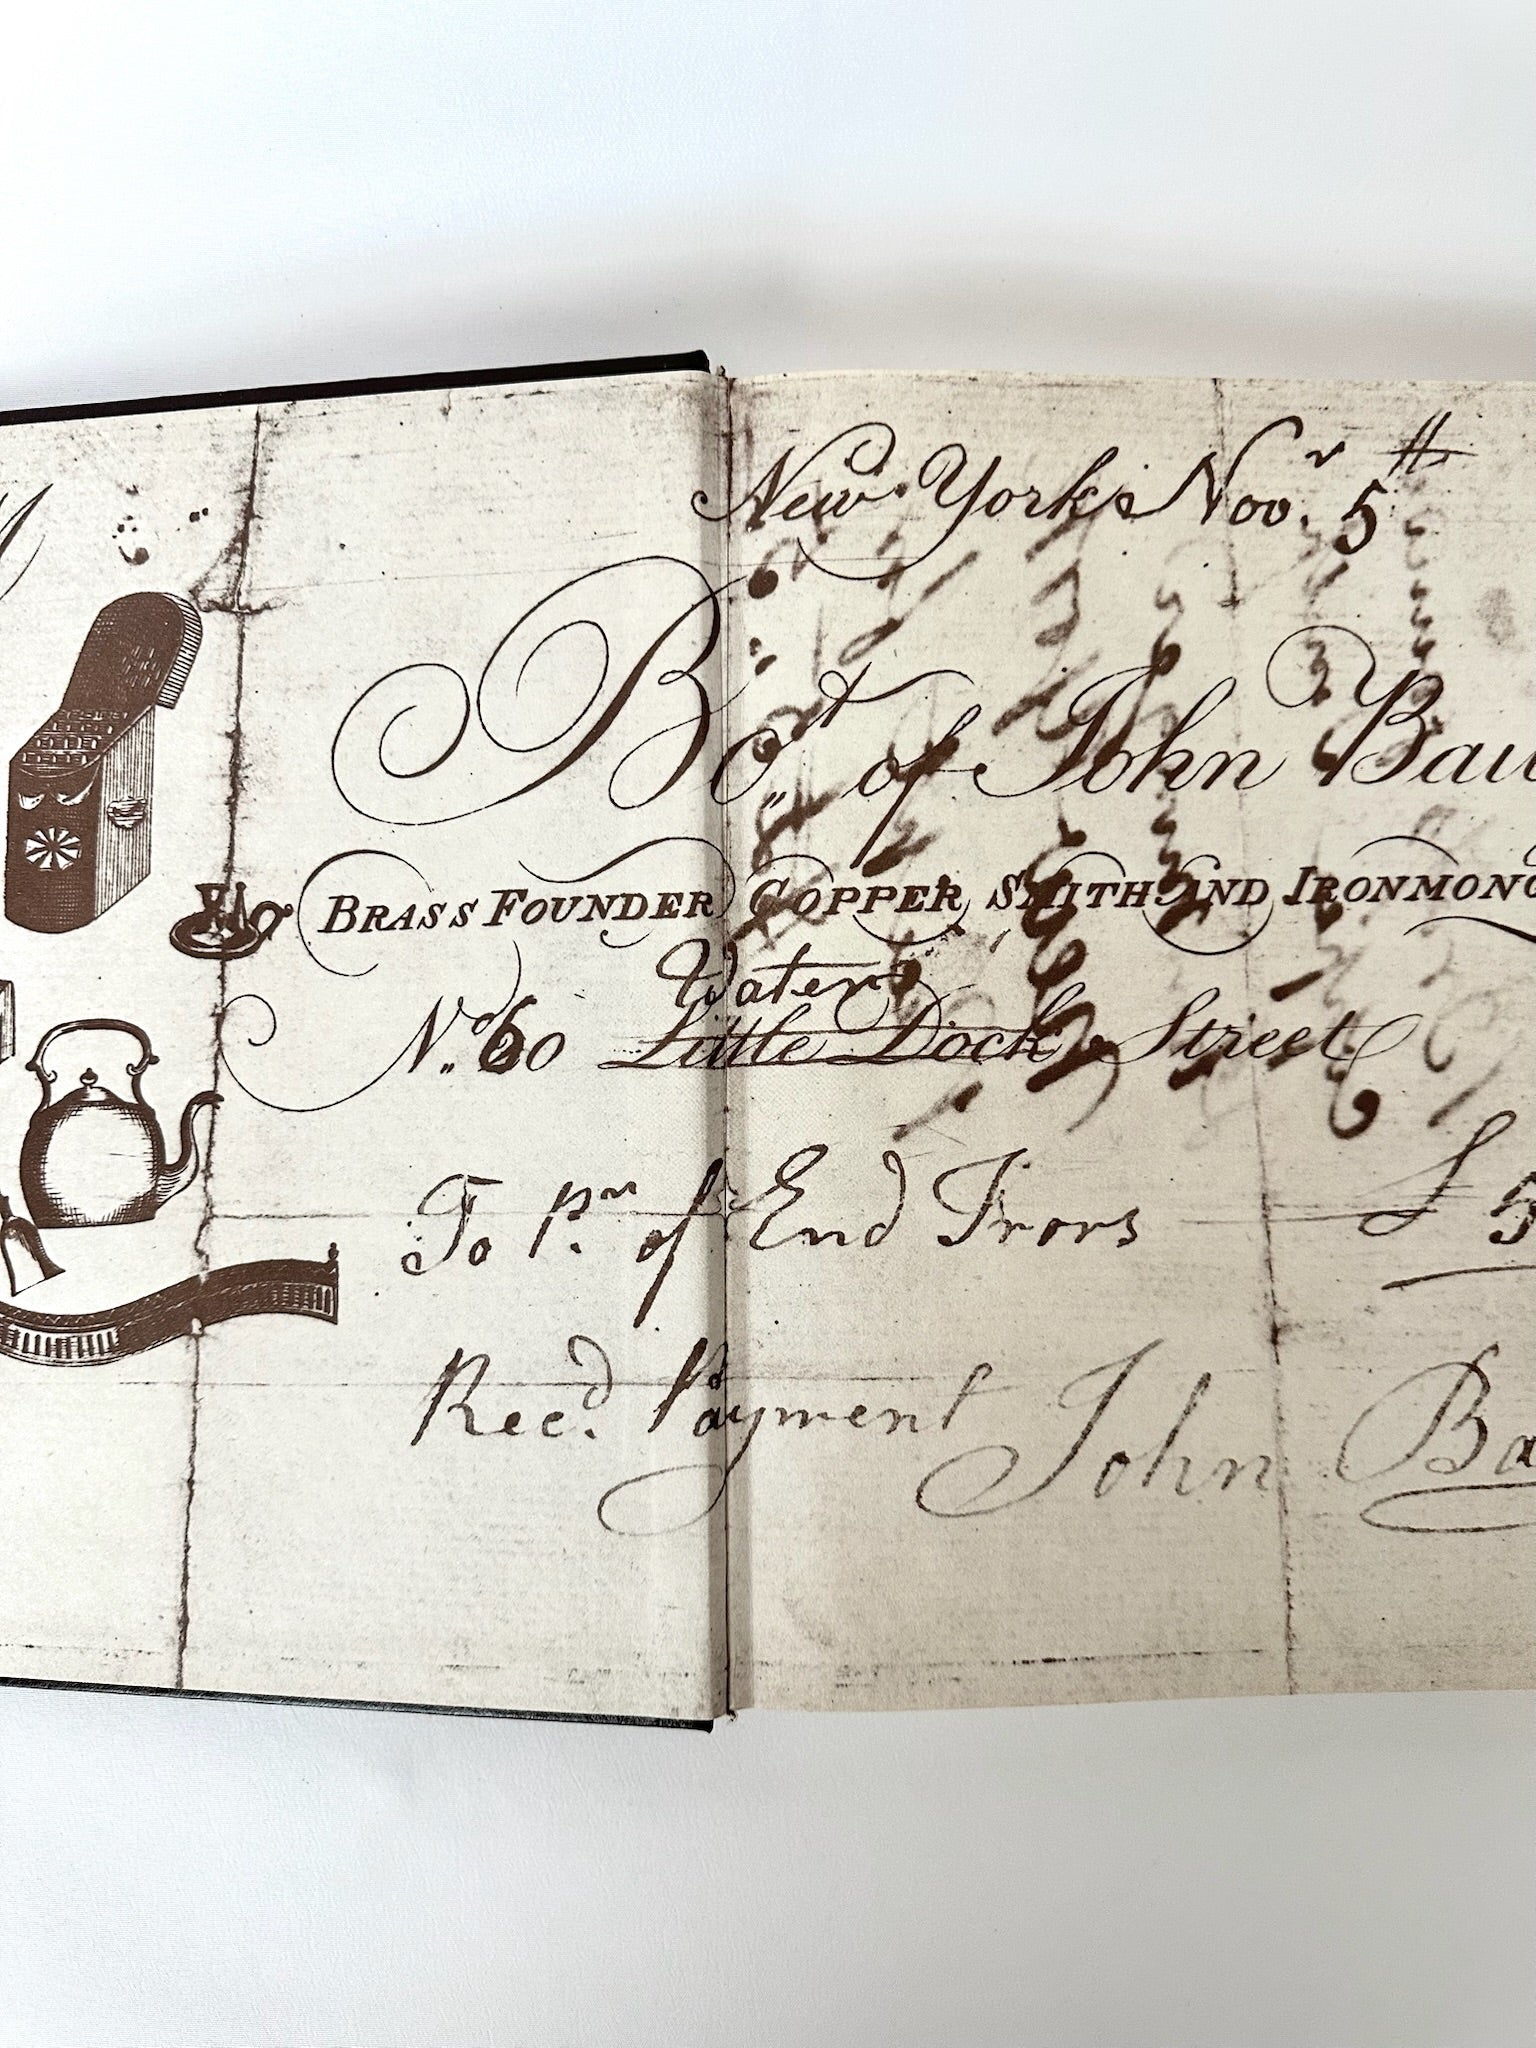 New York Nov.r 5th
Bo.t of John Bai
BRASS FOUNDER COPPER SMITH AND IRONMONG
Water
N.o 60 Little Dock Street
To Pr. of End Irons £ 5
Rec.d Payment John Ba